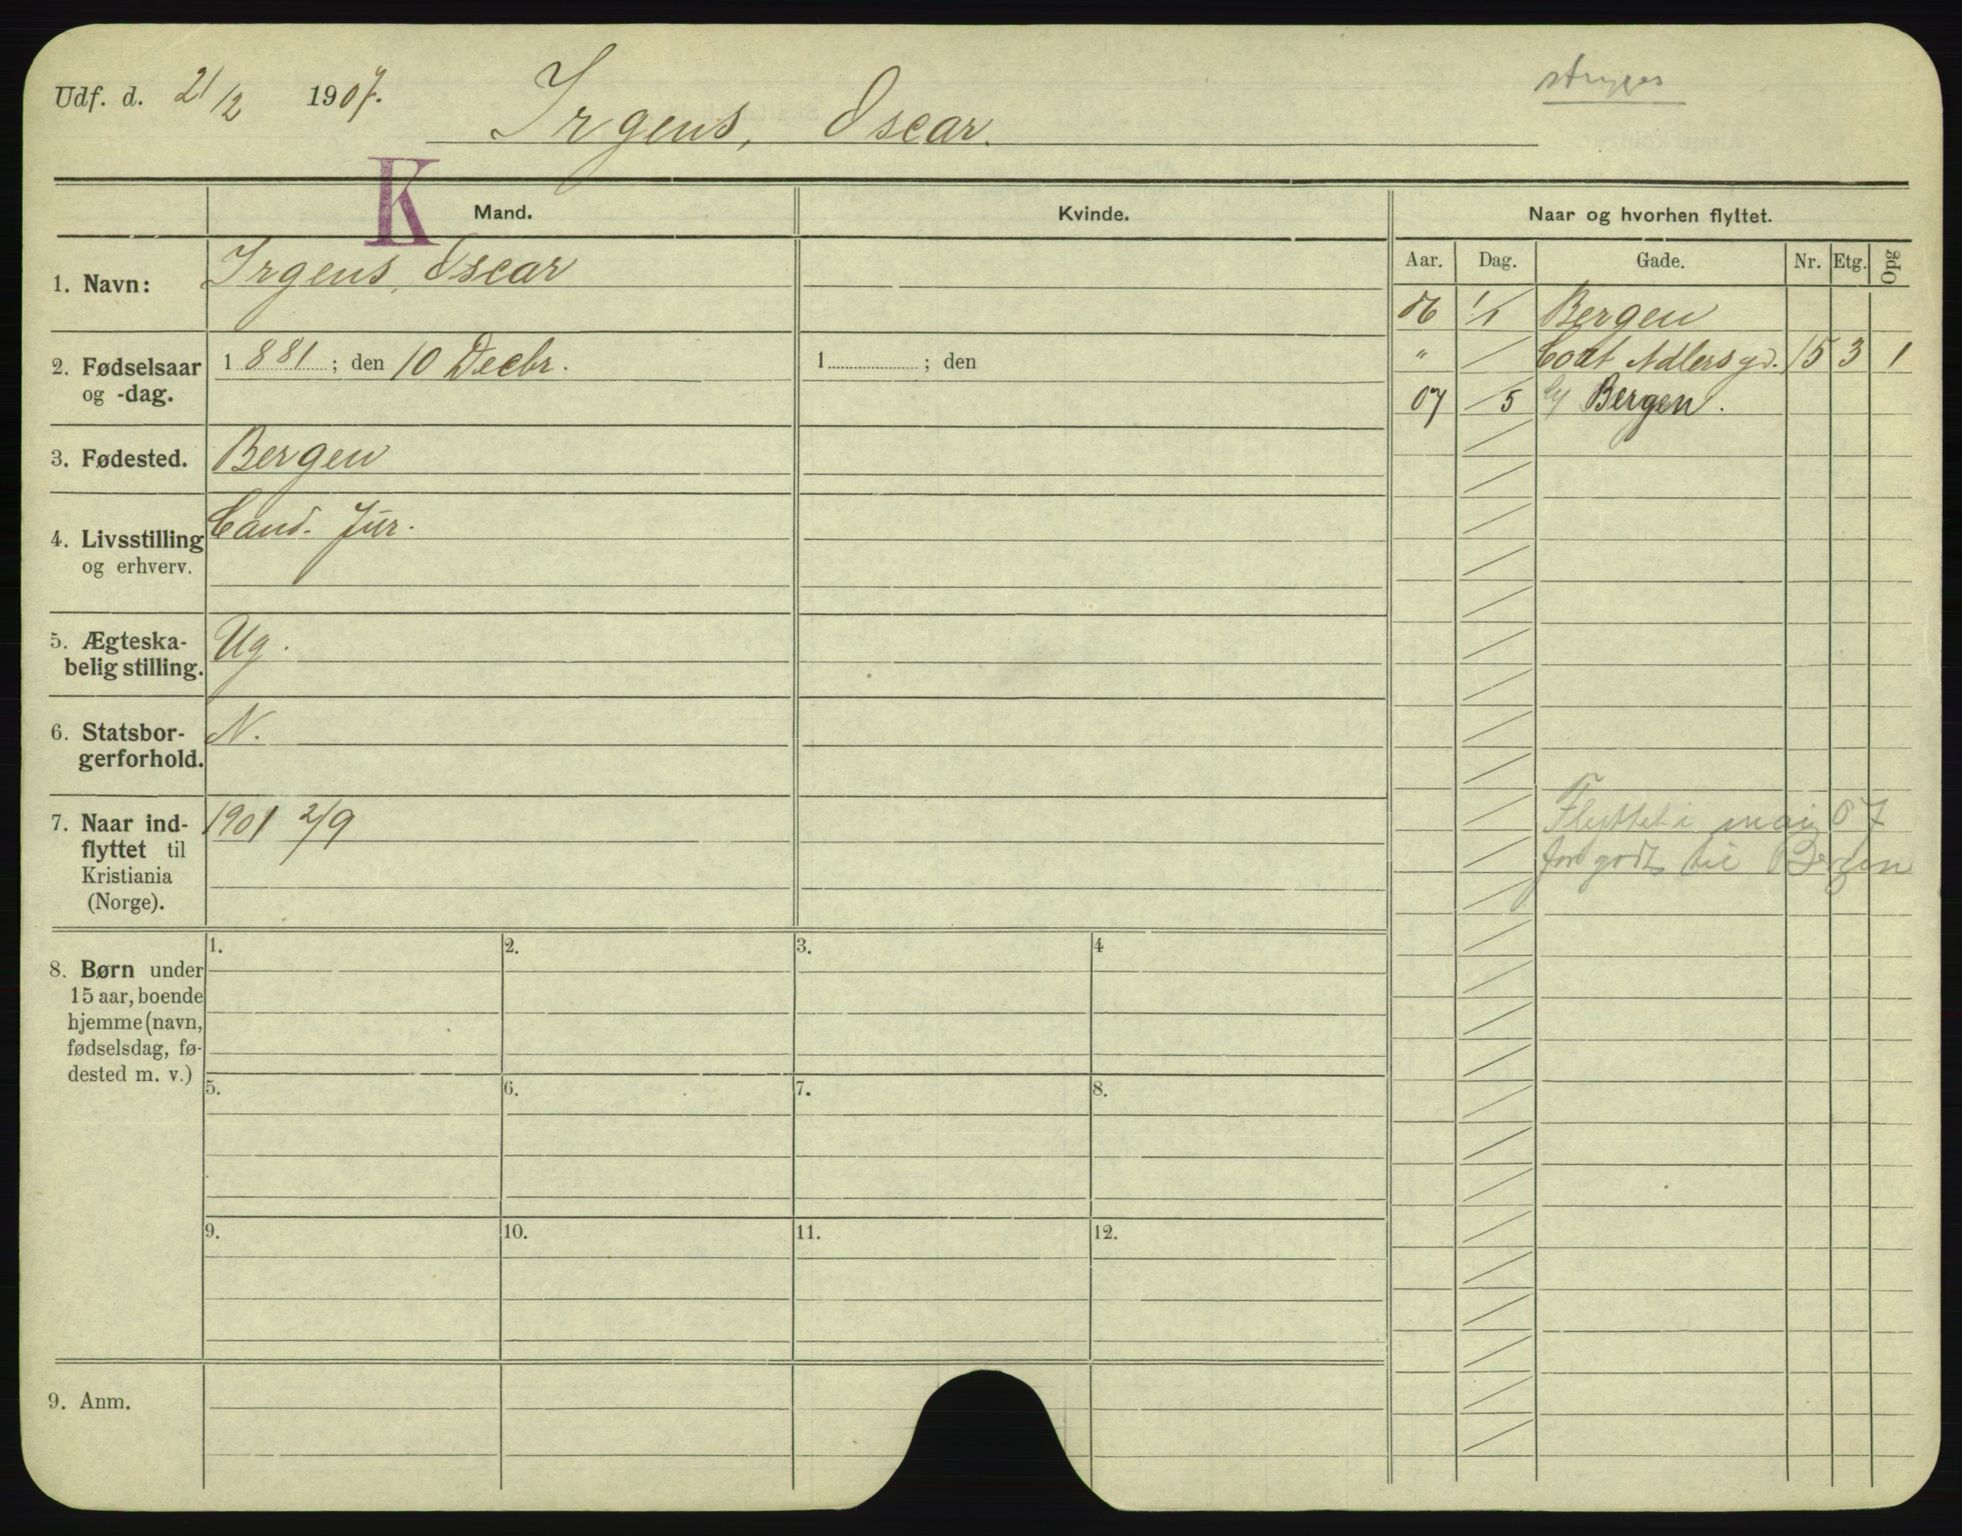 Udf. d. 21/12 1907.
Irgens, Oscar.
stryges
K
Mand.
Kvinde.
Naar og hvorhen flyttet.
Aar. Dag. Gade. Nr. Etg. Opg
1. Navn: Irgens, Oscar
06 1/1 Bergen
" Cort Adlersgd. 15 3 1
07 /5 Bergen.
2. Fødselsaar
og -dag.
1881; den 10 Decbr.
1 ; den
3. Fødested. Bergen
4. Livsstilling
og erhverv.
Cand. Jur.
5. Ægteska-
belig stilling.
Ug.
6. Statsbor-
gerforhold.
N.
7. Naar ind-
flyttet til
Kristiania
(Norge).
1901 2/9
Flyttet i mai 07
for godt til Bergen
8. Børn under
15 aar, boende
hjemme (navn,
fødselsdag, fø-
dested m. v.)
1. 2. 3. 4
5. 6. 7. 8.
9. 10. 11. 12.
9. Anm.